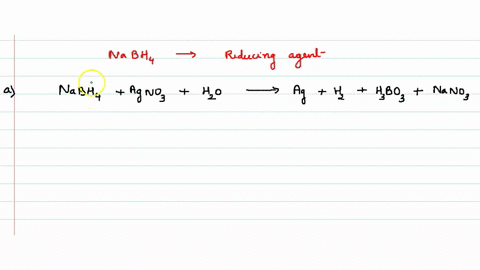 NaBH₄ → Reducing agent
a) NaBH₄ + AgNO₃ + H₂O → Ag + H₂ + H₃BO₃ + NaNO₃